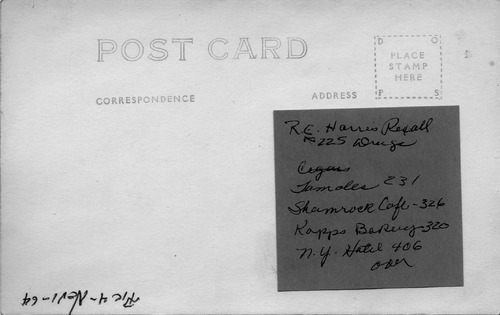 POST CARD
D O
PLACE
STAMP
HERE
P S
CORRESPONDENCE
ADDRESS
R.E. Harris Rexall
#225 Drugs
Cigars
Tamales 231
Shamrock Cafe - 326
Kapps Bakery 320
N.Y. Hotel 406
over